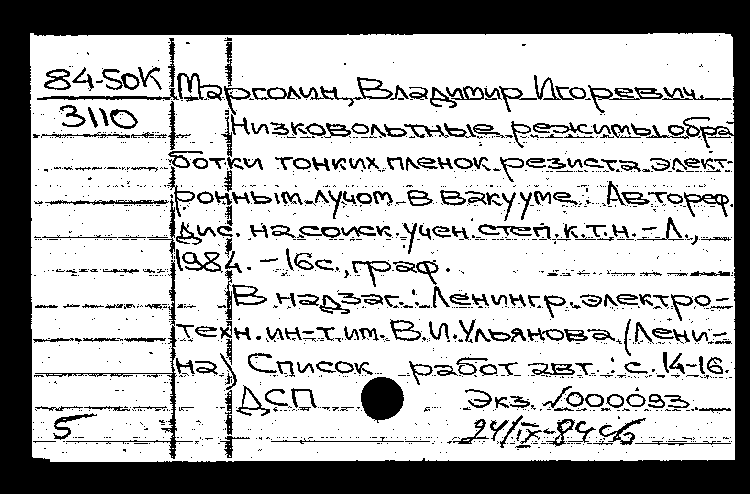 84-5ОК Марголин, Владимир Игоревич.
3110 Низковольтные режимы обра
ботки тонких пленок резиста элект-
ронным лучом в вакууме: Автореф.
дис. на соиск. учен. степ. к.т.н. - Л.,
1984. - 16с., граф.
В надзаг.: Ленингр. электро-
техн. ин-т им. В.И. Ульянова (Лени-
на) Список работ авт.: с. 14-16.
ДСП Экз. №000093
5 24/IX-84